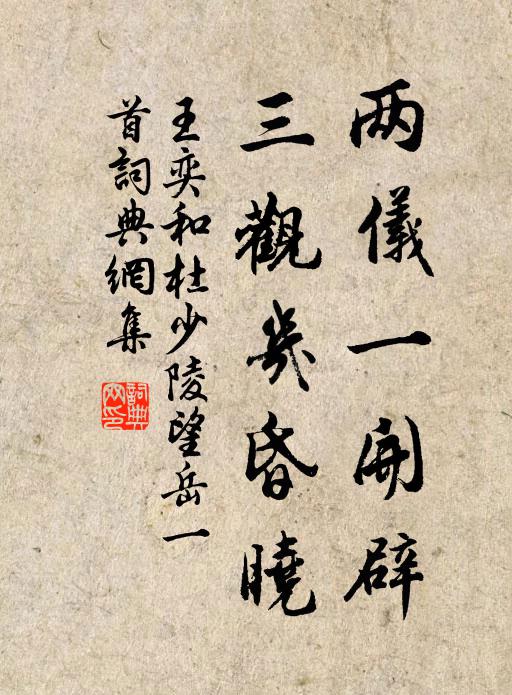 两儀一開辟
三觀幾昏曉
王奕和杜少陵望岳一
首詞典網集
詞典网印